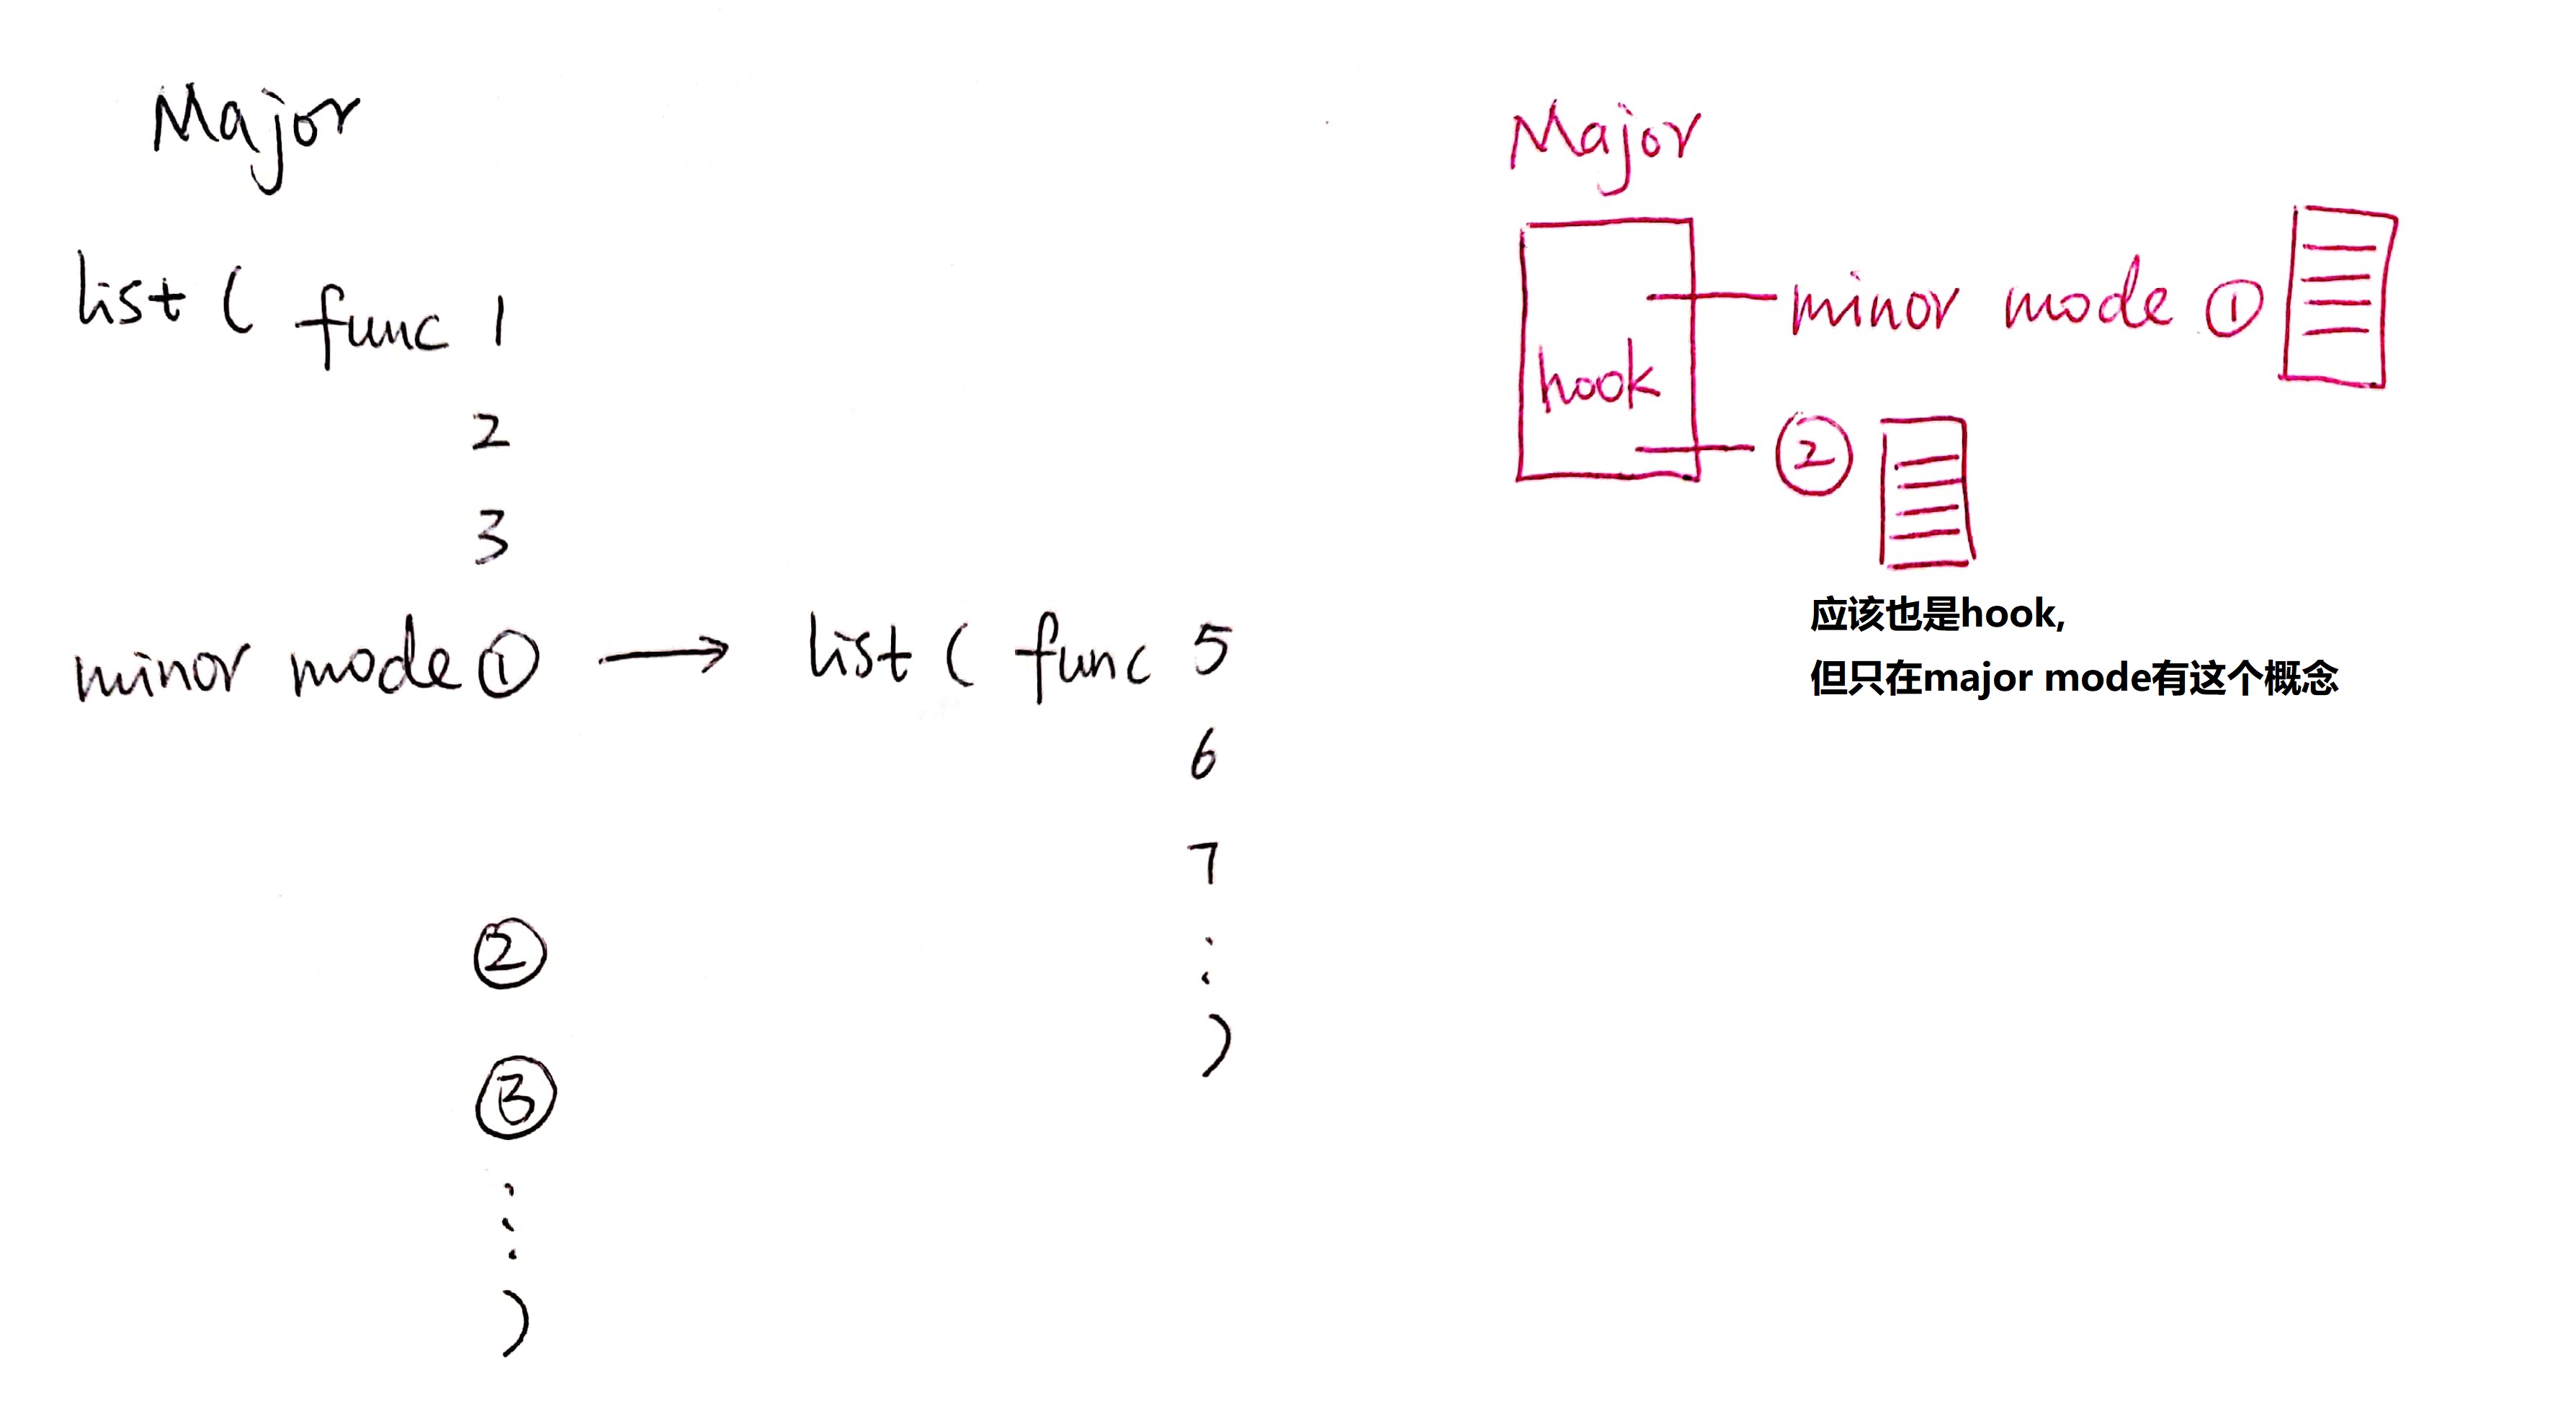 Major
list ( func 1
2
3
minor mode ① → list ( func 5
6
7
⋮
)
②
③
⋮
)
Major
minor mode ①
hook
②
应该也是hook,
但只在major mode有这个概念